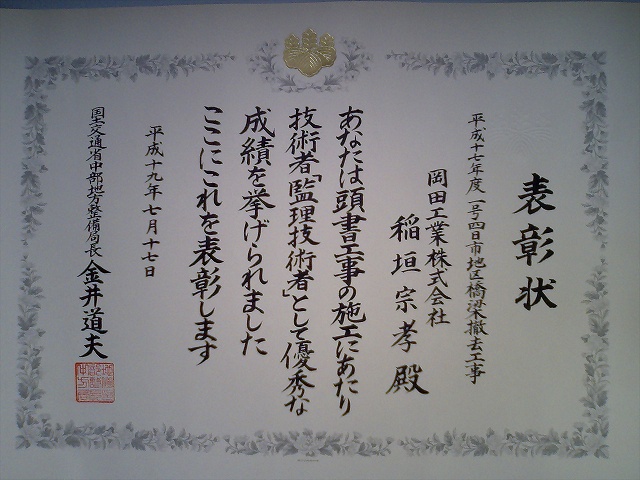 表彰状
平成十七年度一号四日市地区橋梁撤去工事
岡田工業株式会社
稲垣宗孝殿
あなたは頭書工事の施工にあたり
技術者「監理技術者」として優秀な
成績を挙げられました
ここにこれを表彰します
平成十九年七月十七日
国土交通省中部地方整備局長 金井道夫